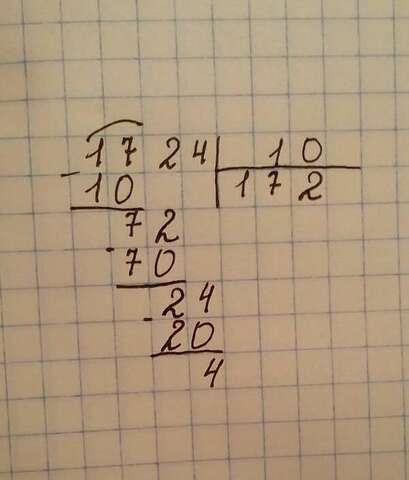 1724 10
- 10 172
72
- 70
24
- 20
4